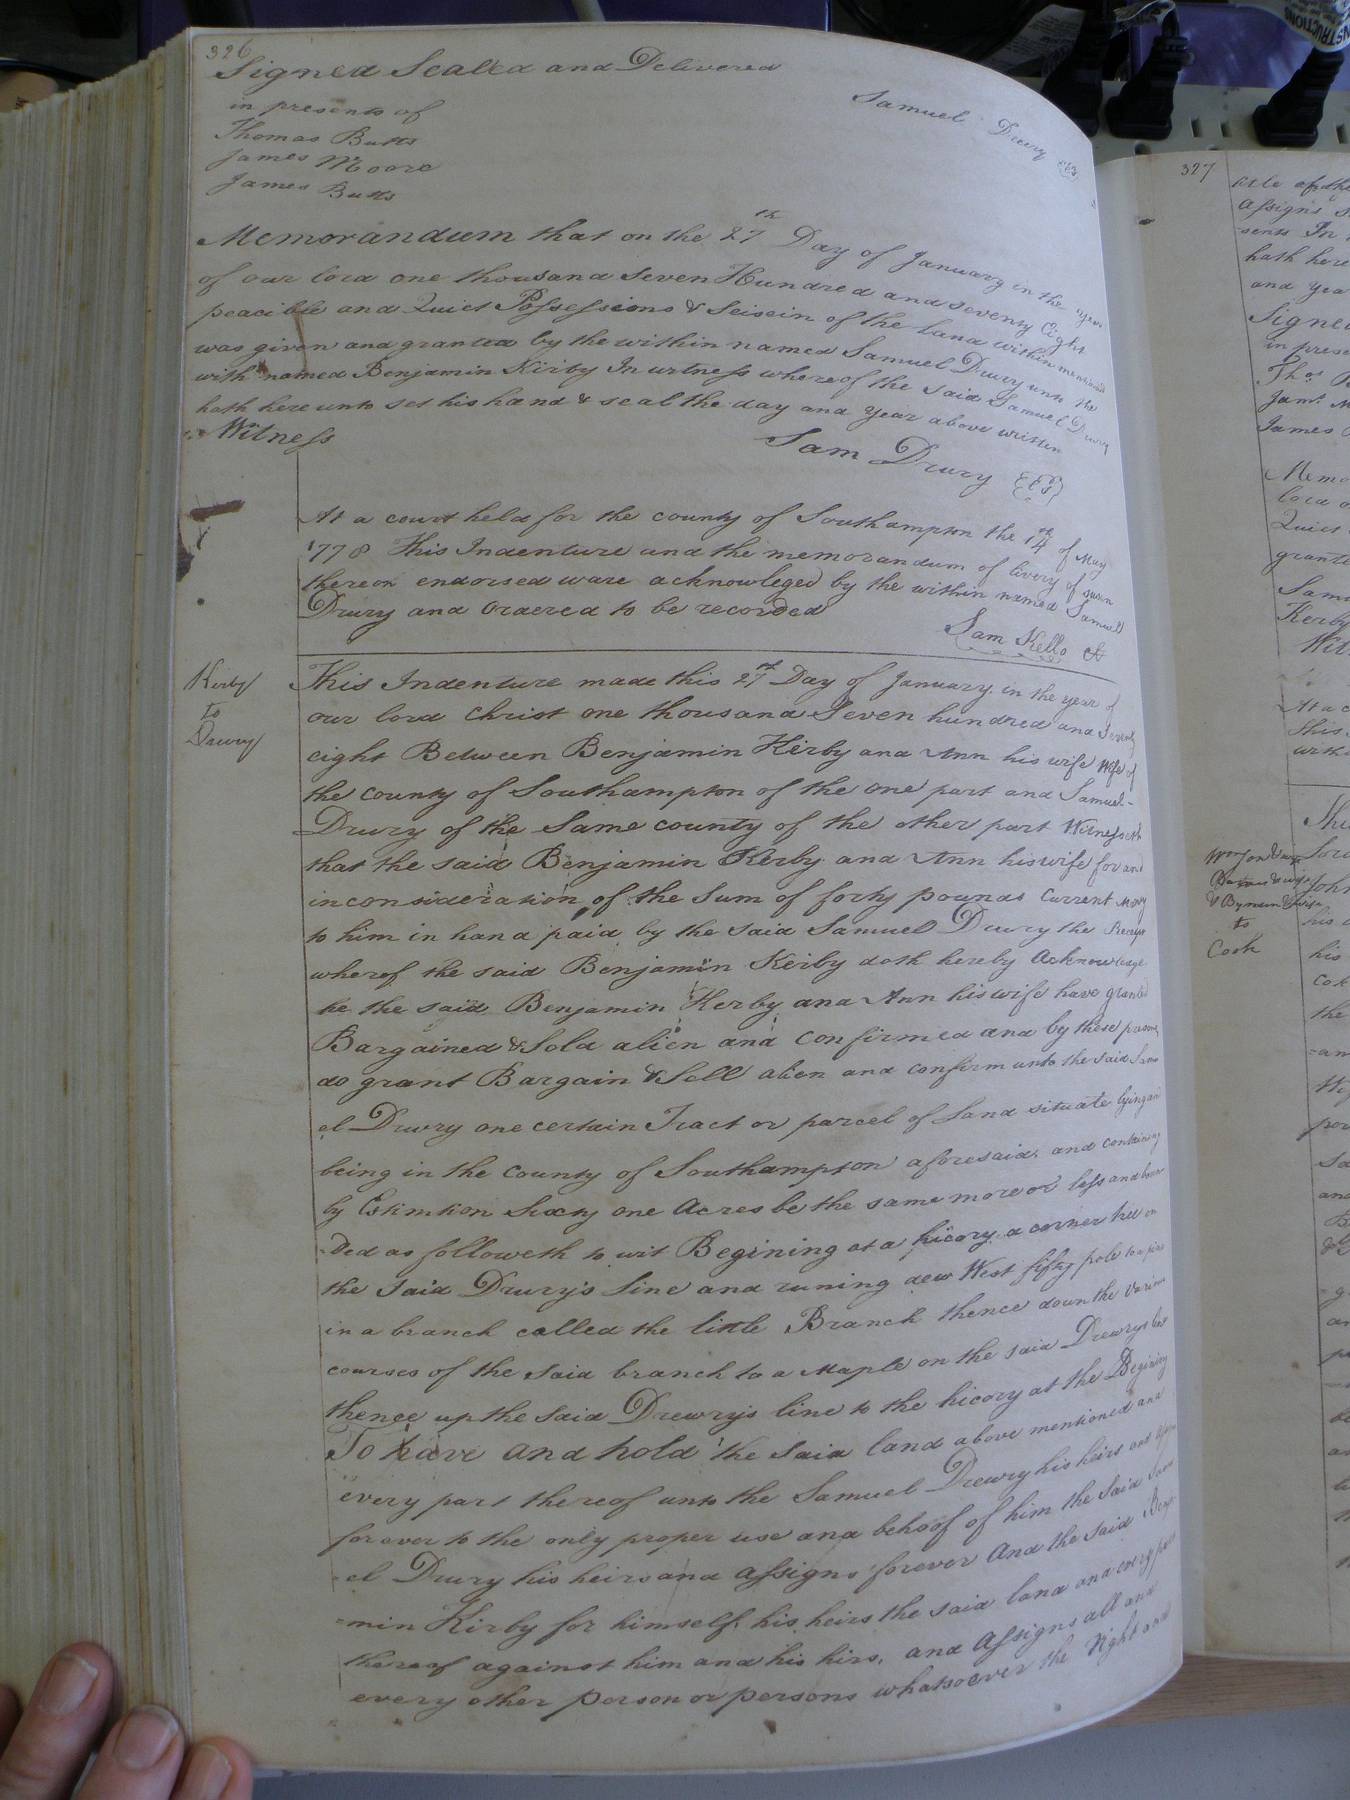 326
Signed Sealed and Delivered
in presents of
Thomas Butts
James Moore
James Butts
Samuel Drury
Memorandum that on the 27th Day of January in the year
of our lord one thousand Seven Hundred and seventy Eight
peacible and Quiet Possessions & Seisein of the land within mentioned
was given and granted by the within named Samuel Drury unto the
with named Benjamin Kirby In witness whereof the said Samuel Drury
hath here unto set his hand & seal the day and year above written
Witness
Sam Drury
At a court held for the county of Southampton the 14th of May
1778 This Indenture and the memorandum of livery of
thereon endorsed ware acknowleged by the within named Samuel
Drury and Ordered to be recorded
Sam Kello
Kerby
to
Drury
This Indenture made this 27th Day of January in the year of
our lord Christ one thousand Seven hundred and Seventy
eight Between Benjamin Kerby and Ann his wife Wife of
the county of Southampton of the one part and Samuel-
Drury of the Same county of the other part Witnesseth
that the said Benjamin Kerby and Ann his wife for and
inconsideration of the Sum of forty pounds Current Mony
to him in hand paid by the said Samuel Drury the Receipt
wheref the said Benjamin Kerby doth hereby Acknowledge
he the said Benjamin Kerby and Ann his wife have granted
Bargained & Sold alien and confirmed and by these
do grant Bargain & Sell alien and confirm unto the said Samu
el Drury one certain Tract or parcel of Land situate lying and
being in the county of Southampton aforesaid, and containing
by Estimtion Sixty one Acres be the same more or less and boun
=ded as followeth to wit Begining at a hicory a corner tree on
the said Drury's line and runing dew West fifty pole to a pine
in a branch called the little Branch thence down the Various
courses of the Said branch to a Maple on the said Drewrys line
thence up the Said Drewry's line to the hicory at the Begining
To have and hold the Said land above mentioned and
every part thereof unto the Samuel Drewry his heirs and Assigns
forever to the only proper use and behoof of him the Said Samu
=el Drury his heirs and Assigns forever And the said Benja
=min Kirby for himself, his heirs the said land and every part
thereof against him and his hirs, and Assigns all and
every other person or persons whatsoever the Right and
327
Assigns
hath here
and yea
Signed
in prese
James
Memo
Quiet
grante
Samu
Kerby
Wit
to
Cook
his
his
the